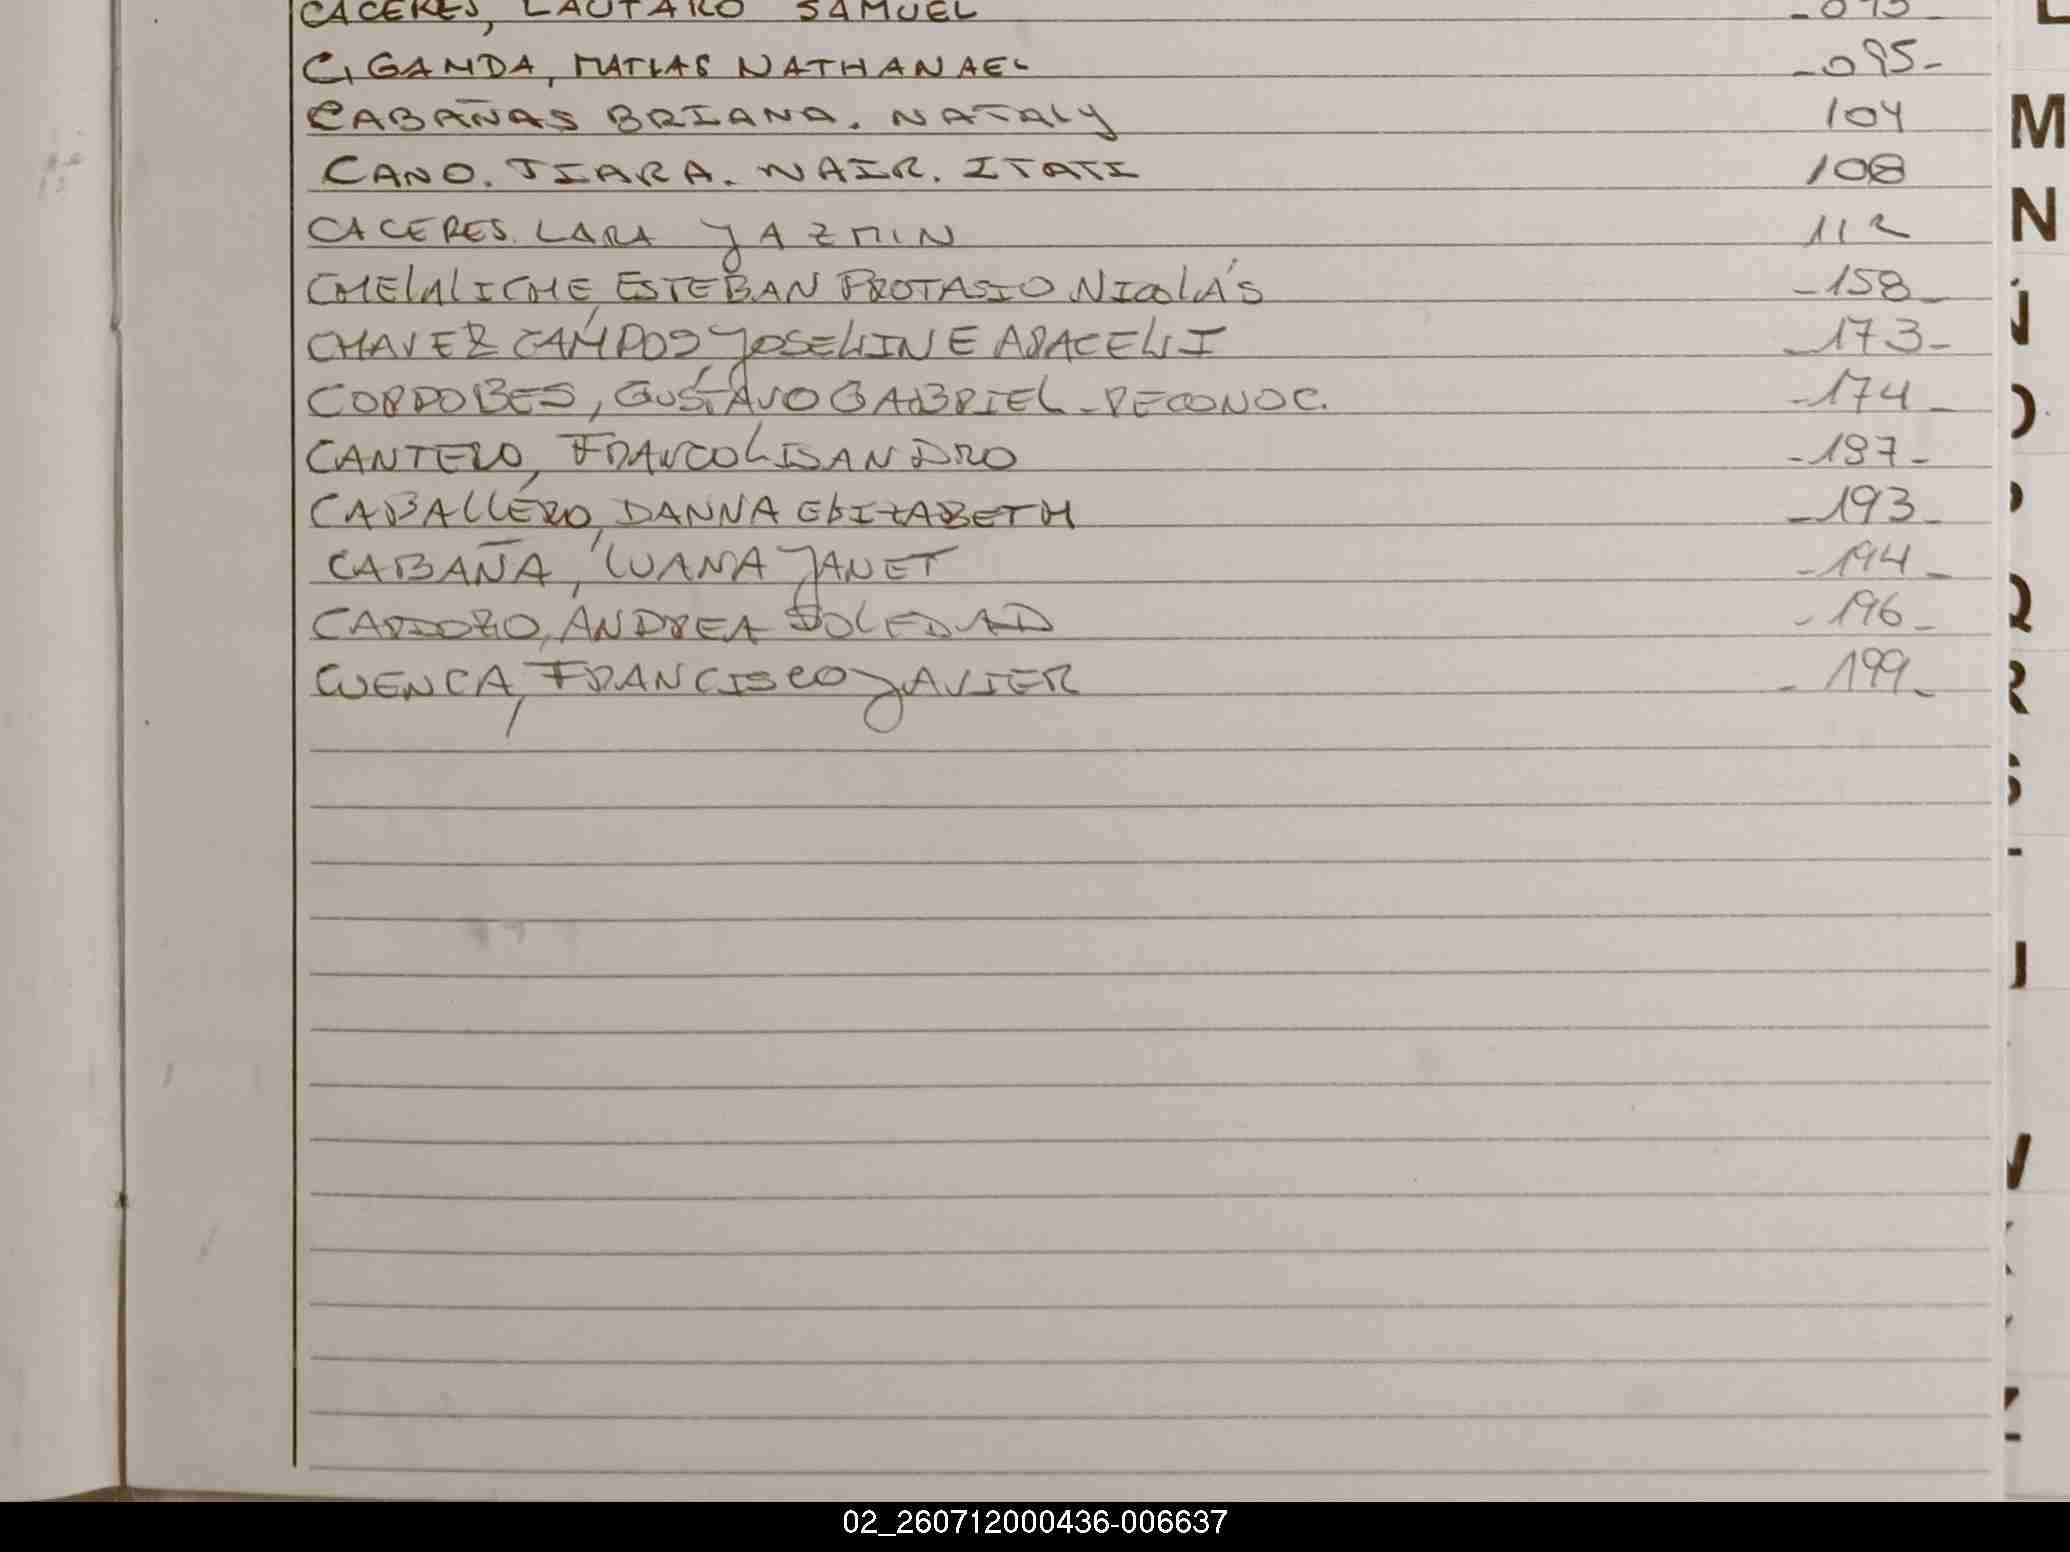 CACERES, LAUTARO SAMUEL
CIGANDA, MATIAS NATHANAEL -095-
CABAÑAS BRIANA. NATALY 104
CANO. TIARA. NAIR. ITATI 108
CACERES. LARA YAZMIN 112
CHELALICHE, ESTEBAN PROTASIO NICOLÁS -158-
CHAVEZ CAMPOS JOSELINE ARACELI -173-
CORDOBES, GUSTAVO GABRIEL - RECONOC. -174-
CANTERO, FRANCO LISANDRO -187-
CABALLERO, DANNA ELIZABETH -193-
CABAÑA, LUANA JANET -194-
CARDOZO, ANDREA SOLEDAD -196-
CUENCA, FRANCISCO JAVIER -199-
L
M
N
Ñ
O
P
Q
R
S
T
U
V
X
Y
Z
02_260712000436-006637